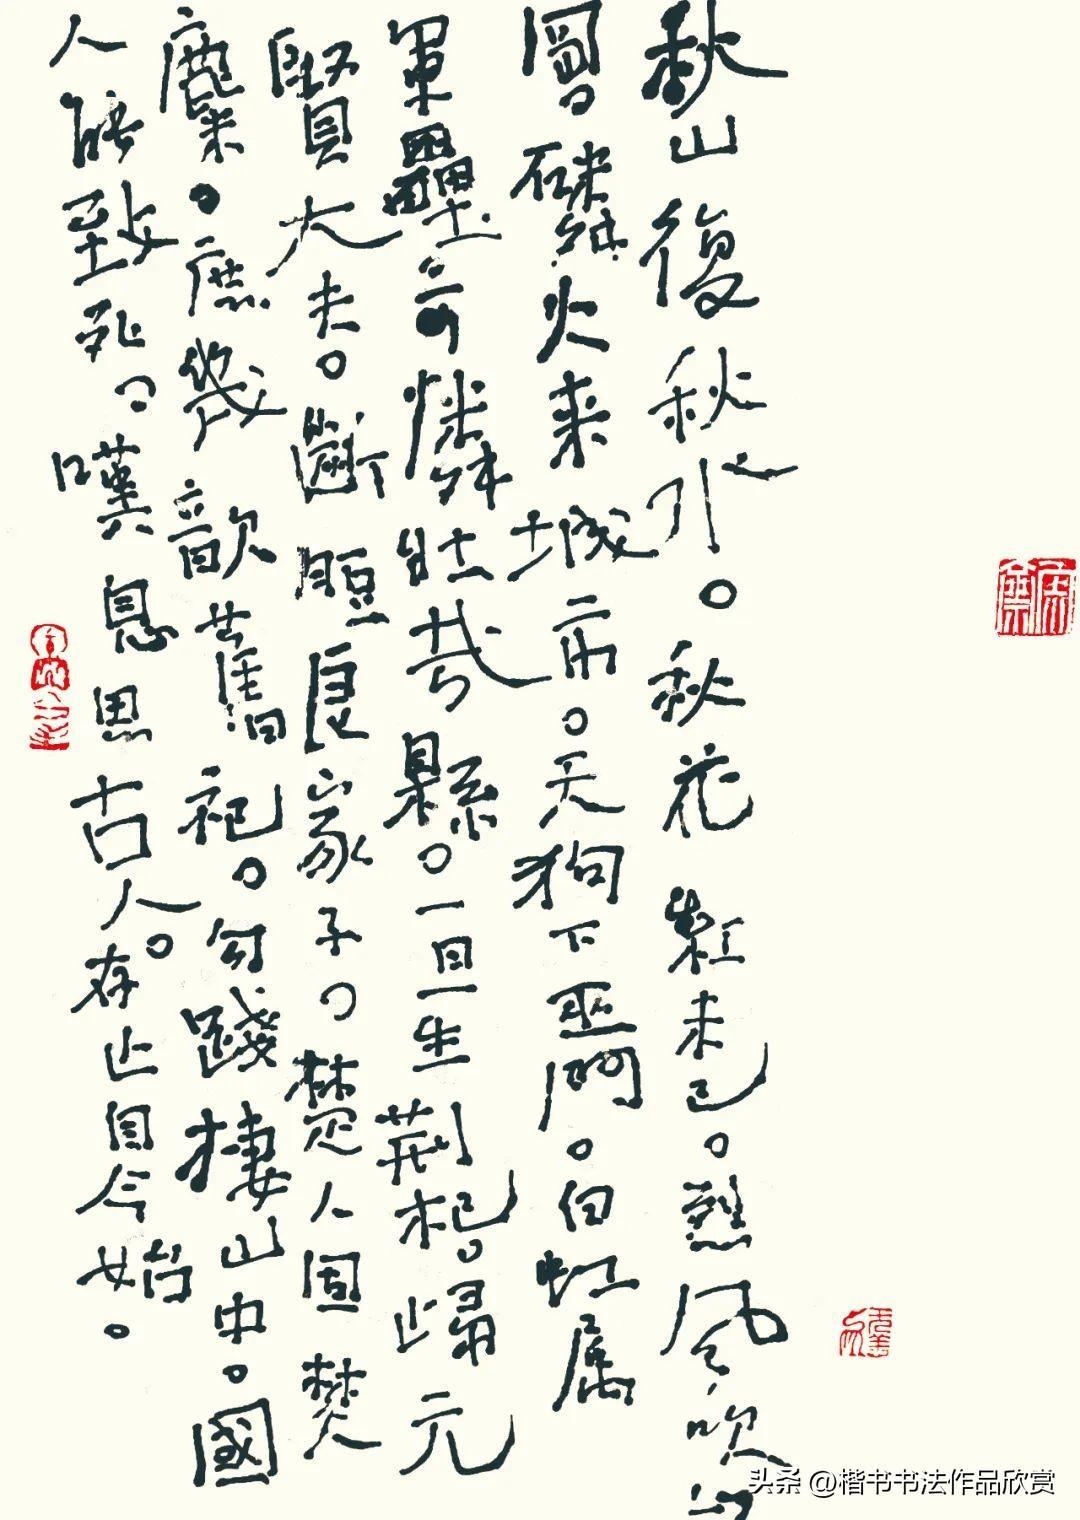 秋山復秋水。秋花紅未已。烈風吹山
岡。磷火来城市。天狗下巫門。白虹属
軍壘。可憐壯哉縣。一旦生荆杞。歸元
賢大夫。斷脰良家子。楚人固焚
麇。庶幾歆舊祀。勾踐棲山中。國
人能致死。嘆息思古人。存亡自今始。
头条 @楷书书法作品欣赏